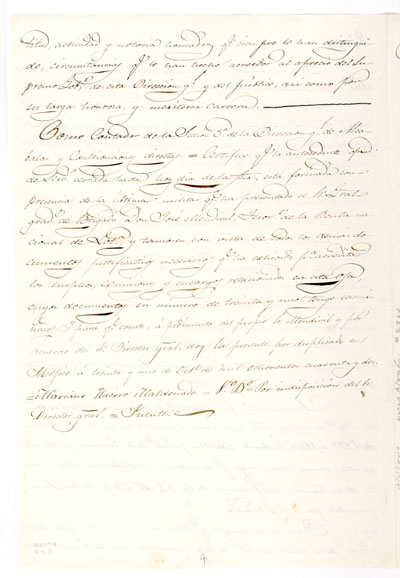 titud, actividad y notoria honradez qe siempre lo han distingui-
do, circunstancias qe lo han hecho acreedor al aprecio del Su-
premo Gobo de esta Direccion gl y del publico, asi como por
su larga honrosa, y meritoria carrera.
Como Contador de la Seccn 2a de la Direccion gl de Alca-
balas y Contribuciones directas = Certifico qe la antecedente
de Serv. cerrada hasta hoy dia de la fha, está formada con
presencia de la ultima militar qe ha presentado el Sr Gral
graddo de Brigada Don José Mendivil Tesoro de la Renta na-
cional de y tambien con vista de todos los demas do-
cumentos justificativos necesarios qe ha exhivido pa acreditar
los empleos Comisiones y encargos relacionados en esta
cuyos documentos en numero de treinta y uno tengo exami-
nados. I para qe conste, á pedimento del propio Sr Mendivil y por
acuerdo del Sr Director gral. doy la presente por duplicado en
Mejico á treinta y uno de Octe de mil ochocientos cuarenta y dos.
= Mariano Hierro Maldonado = Vo Bo = Por indisposicion del Sr
Director gral. = Puente.
4